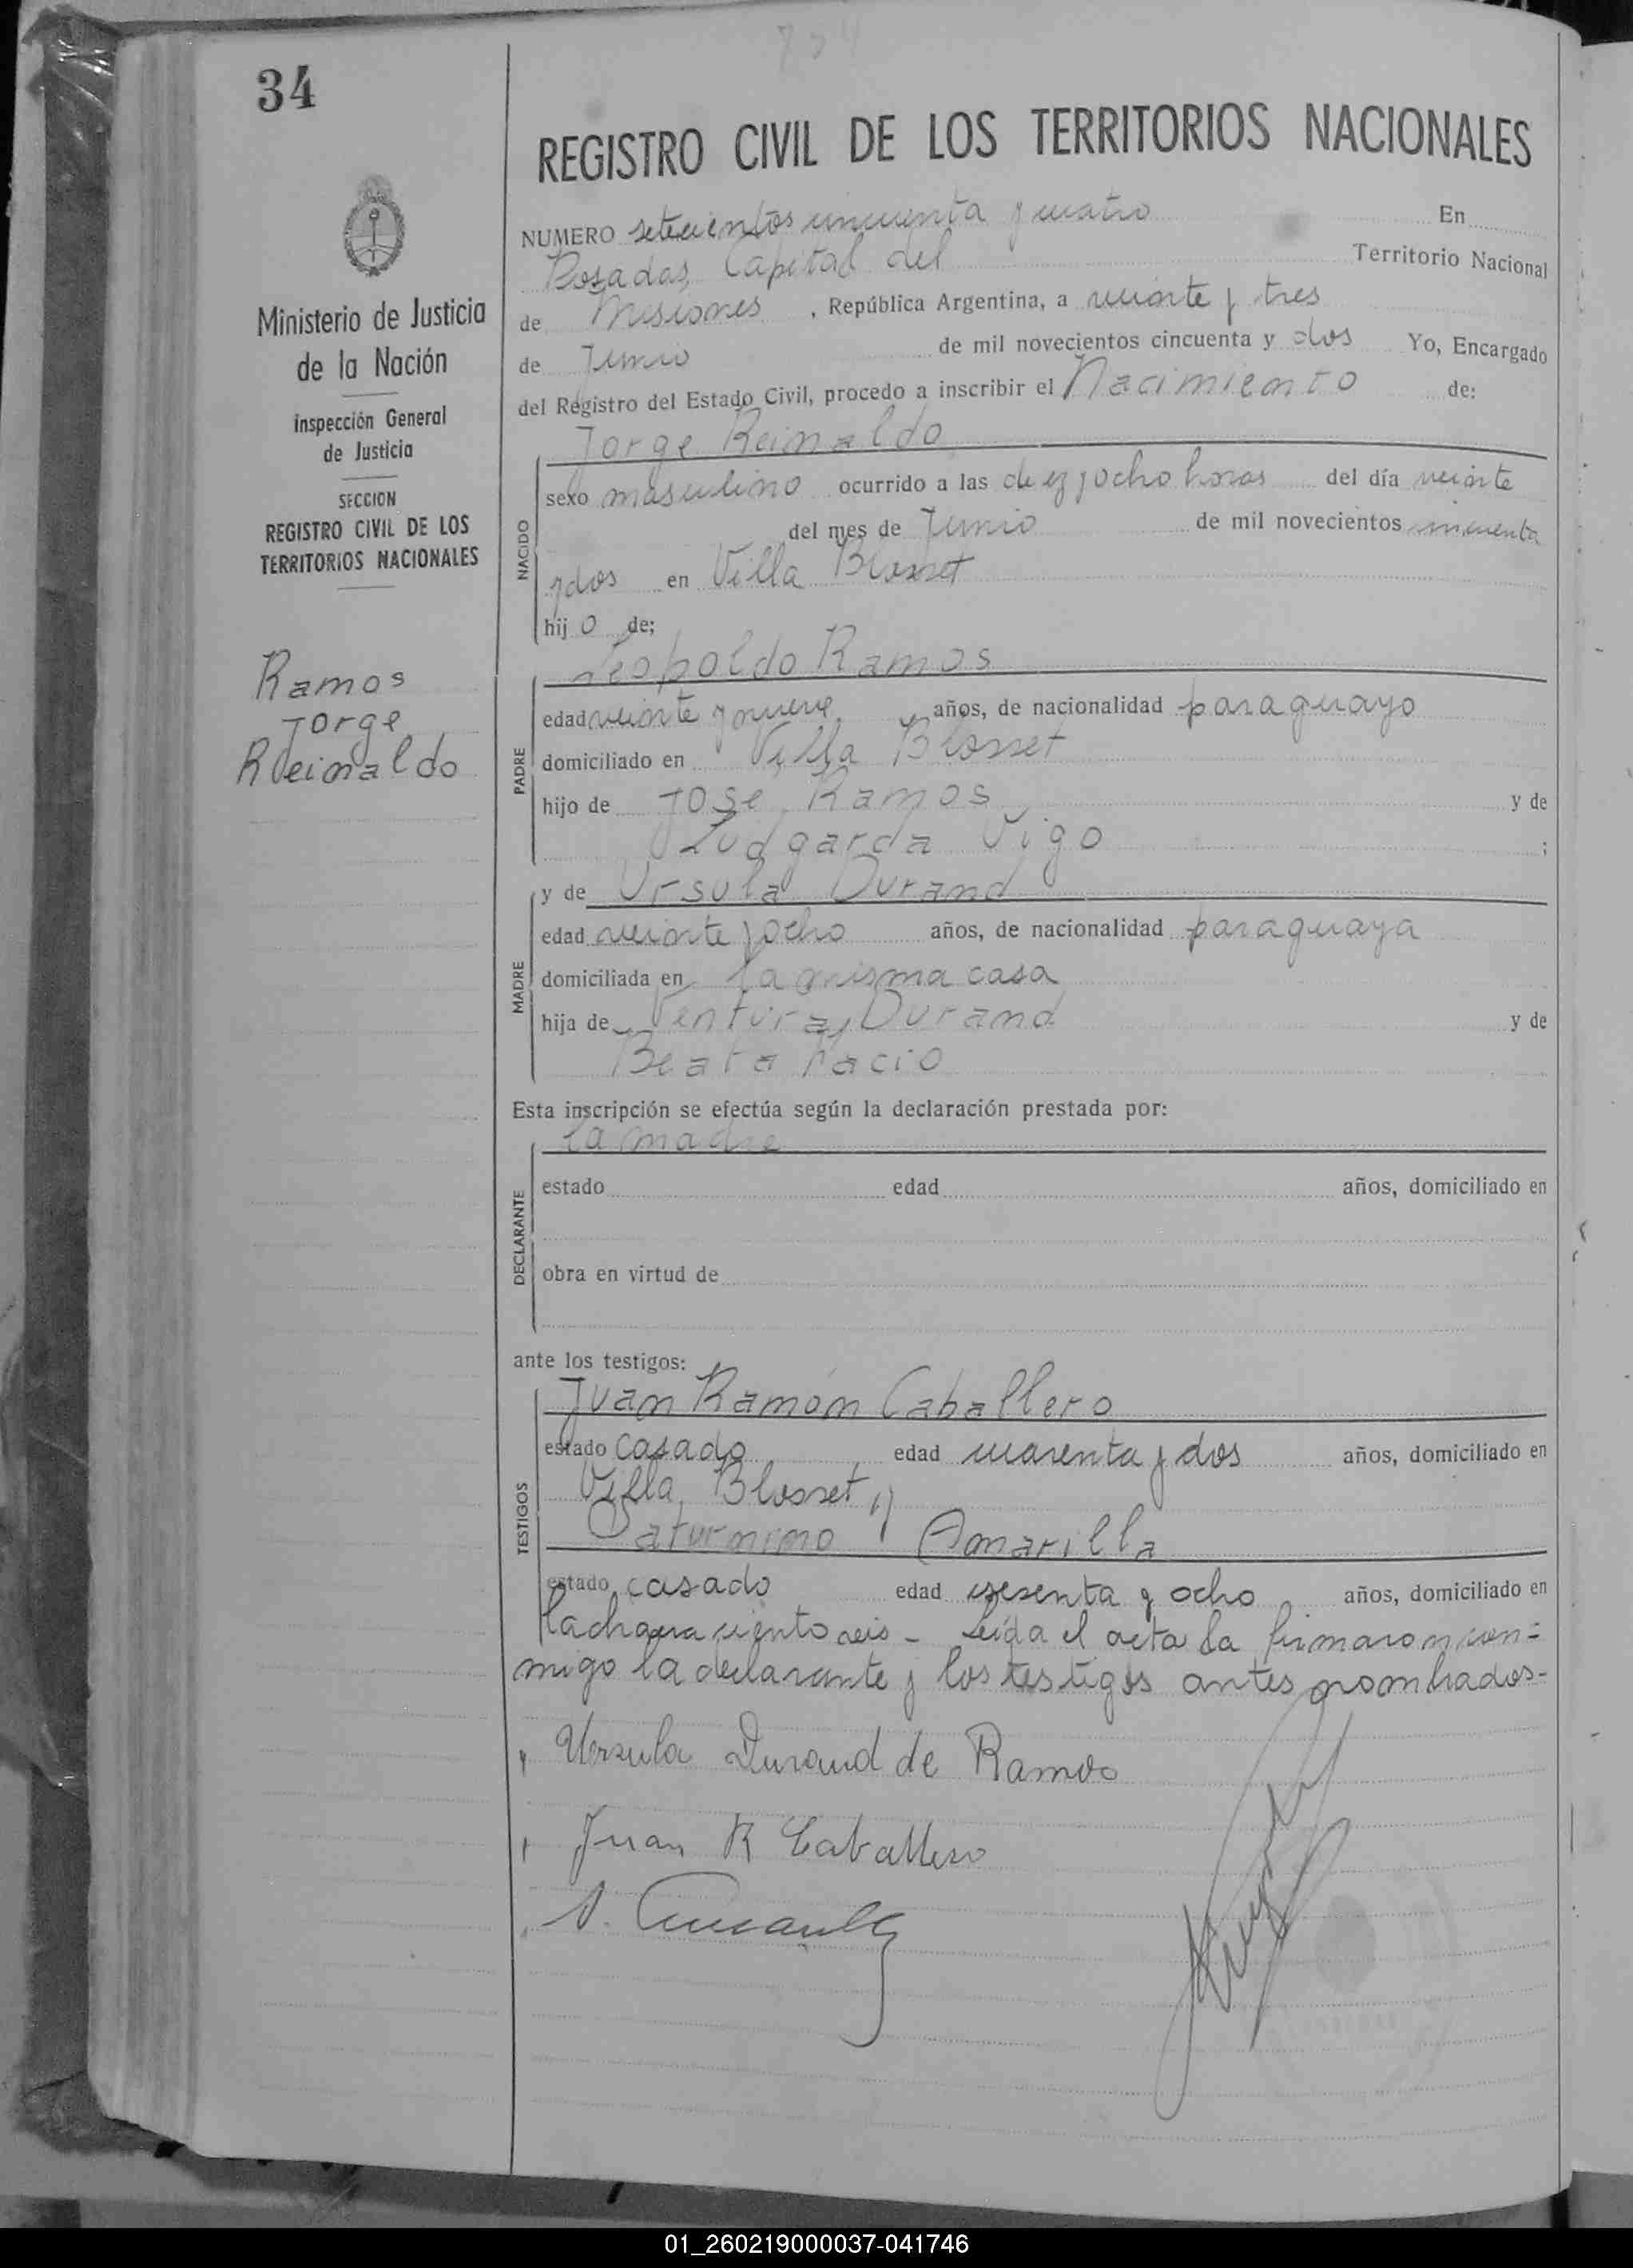 34
754
REGISTRO CIVIL DE LOS TERRITORIOS NACIONALES
Ministerio de Justicia
de la Nación
Inspección General
de Justicia
SECCION
REGISTRO CIVIL DE LOS
TERRITORIOS NACIONALES
Ramos
Jorge
Reinaldo
NUMERO setecientos cincuenta y cuatro En
Posadas, Capital del Territorio Nacional
de Misiones, República Argentina, a veinte y tres
de Junio de mil novecientos cincuenta y dos Yo, Encargado
del Registro del Estado Civil, procedo a inscribir el Nacimiento de:
Jorge Reinaldo
NACIDO
sexo masculino ocurrido a las diez y ocho horas del día veinte
del mes de Junio de mil novecientos cincuenta
y dos en Villa Blosset
hijo de;
PADRE
Leopoldo Ramos
edad veinte y nueve años, de nacionalidad paraguayo
domiciliado en Villa Blosset
hijo de José Ramos y de
Ludgarda Vigo ;
MADRE
y de Ursula Durand
edad veinte y ocho años, de nacionalidad paraguaya
domiciliada en la misma casa
hija de Ventura Durand y de
Beata
Esta inscripción se efectúa según la declaración prestada por:
la madre
DECLARANTE
estado edad años, domiciliado en
obra en virtud de
ante los testigos:
TESTIGOS
Juan Ramón Caballero
estado casado edad cuarenta y dos años, domiciliado en
Villa Blosset y
Saturnino Amarilla
estado casado edad sesenta y ocho años, domiciliado en
la chacra ciento seis - Leída el acta la firmaron con=
migo la declarante y los testigos antes nombrados-
Ursula Durand de Ramos
Juan R Caballero
01_260219000037-041746